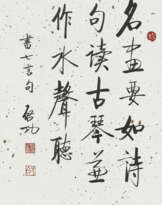 名画要如诗
句读古琴兼
作水声听
书七言句 启功